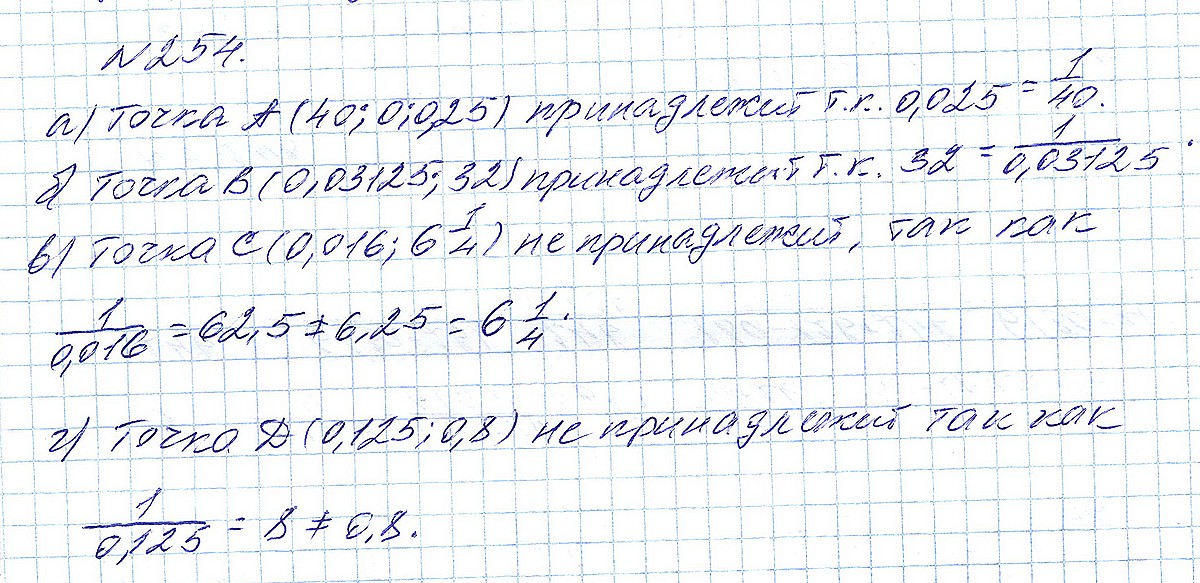 N254.
а) Точка A (40; 0;0,25) принадлежит т.к. 0,025 = 1/40.
б) Точка B (0,03125; 32) принадлежит т.к. 32 = 1/0,03125.
в) Точка C (0,016; 6 1/4) не принадлежит, так как
1/0,016 = 62,5 ≠ 6,25 = 6 1/4.
г) Точка D (0,125; 0,8) не принадлежит так как
1/0,125 = 8 ≠ 0,8.